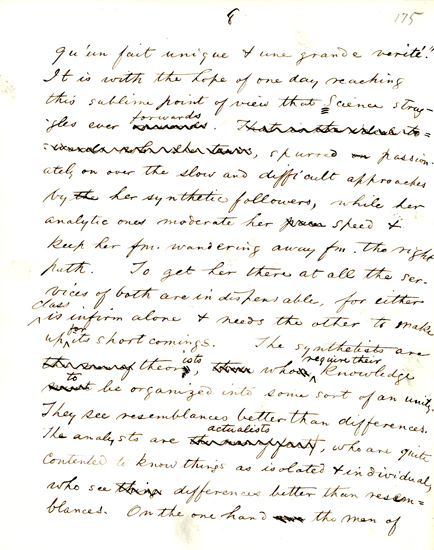 8
175
qu'un fait unique & une grande verité."
It is with the hope of one day reaching
this sublime point of view that Science strug-
gles ever forwards. That is the ideal to-
, spurred on passion-
ately on over the slow and difficult approaches
by the her synthetic followers, while her
analytic ones moderate her speed &
keep her fm. wandering away fm. the right
path. To get her there at all the ser-
vices of both are indispensable, for either
class is infirm alone & needs the other to make
up for its short comings. The synthetists are
theorists, who require their knowledge
to be organized into some sort of an unity.
They see resemblances better than differences.
The analysts are actualists, who are quite
contented to know things as isolated & individual,
who see differences better than resem-
blances. On the one hand the men of